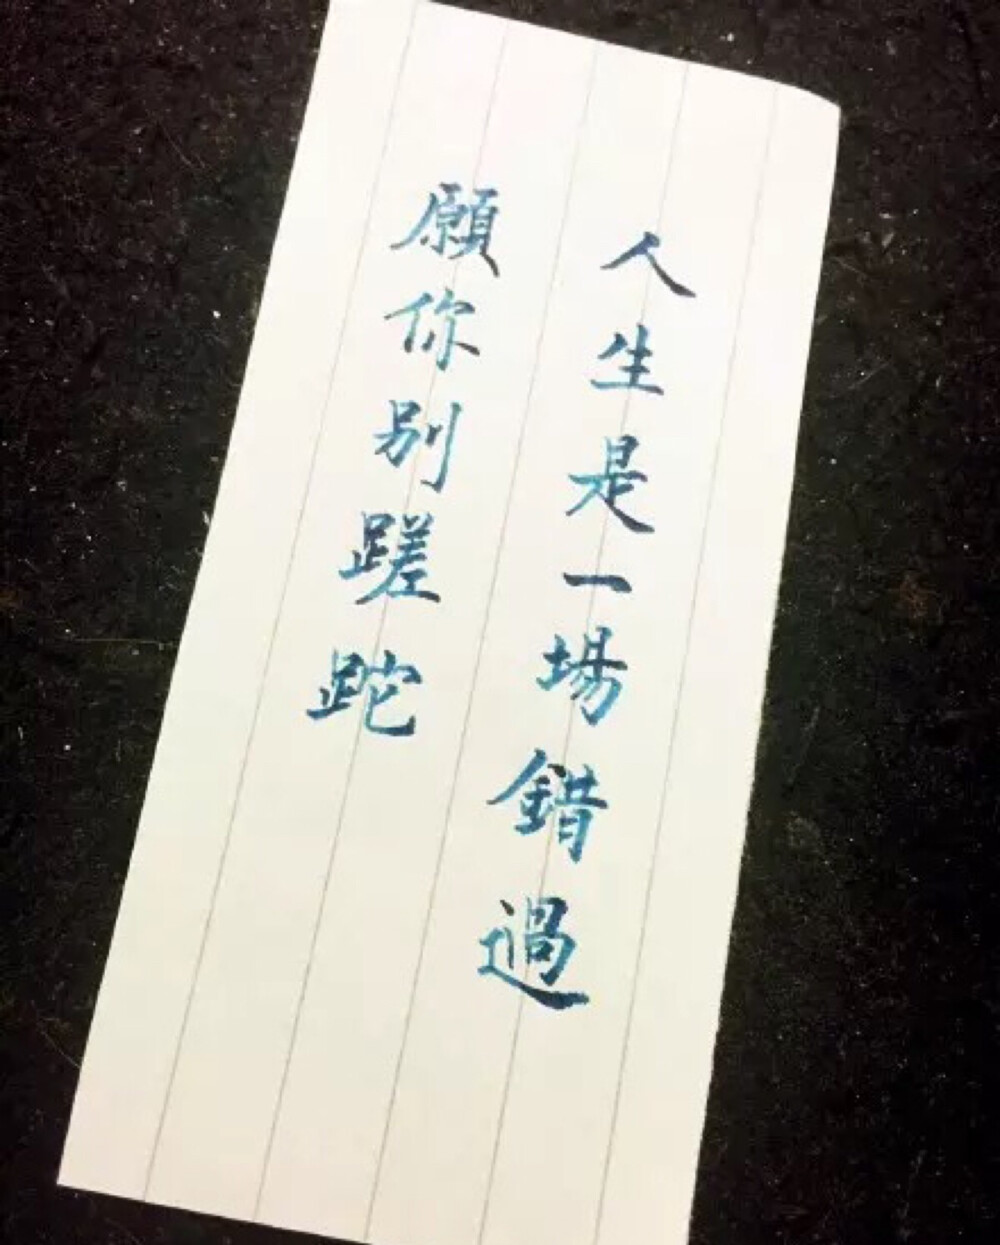 人生是一場錯過
願你別蹉跎